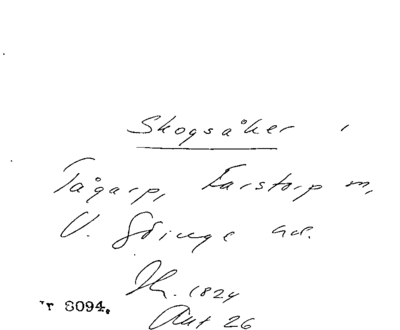 Skogsåker i
Tågarp, Farstorp m,
V. Göinge hd.
Ill. 1824
Akt 26
r 8094.